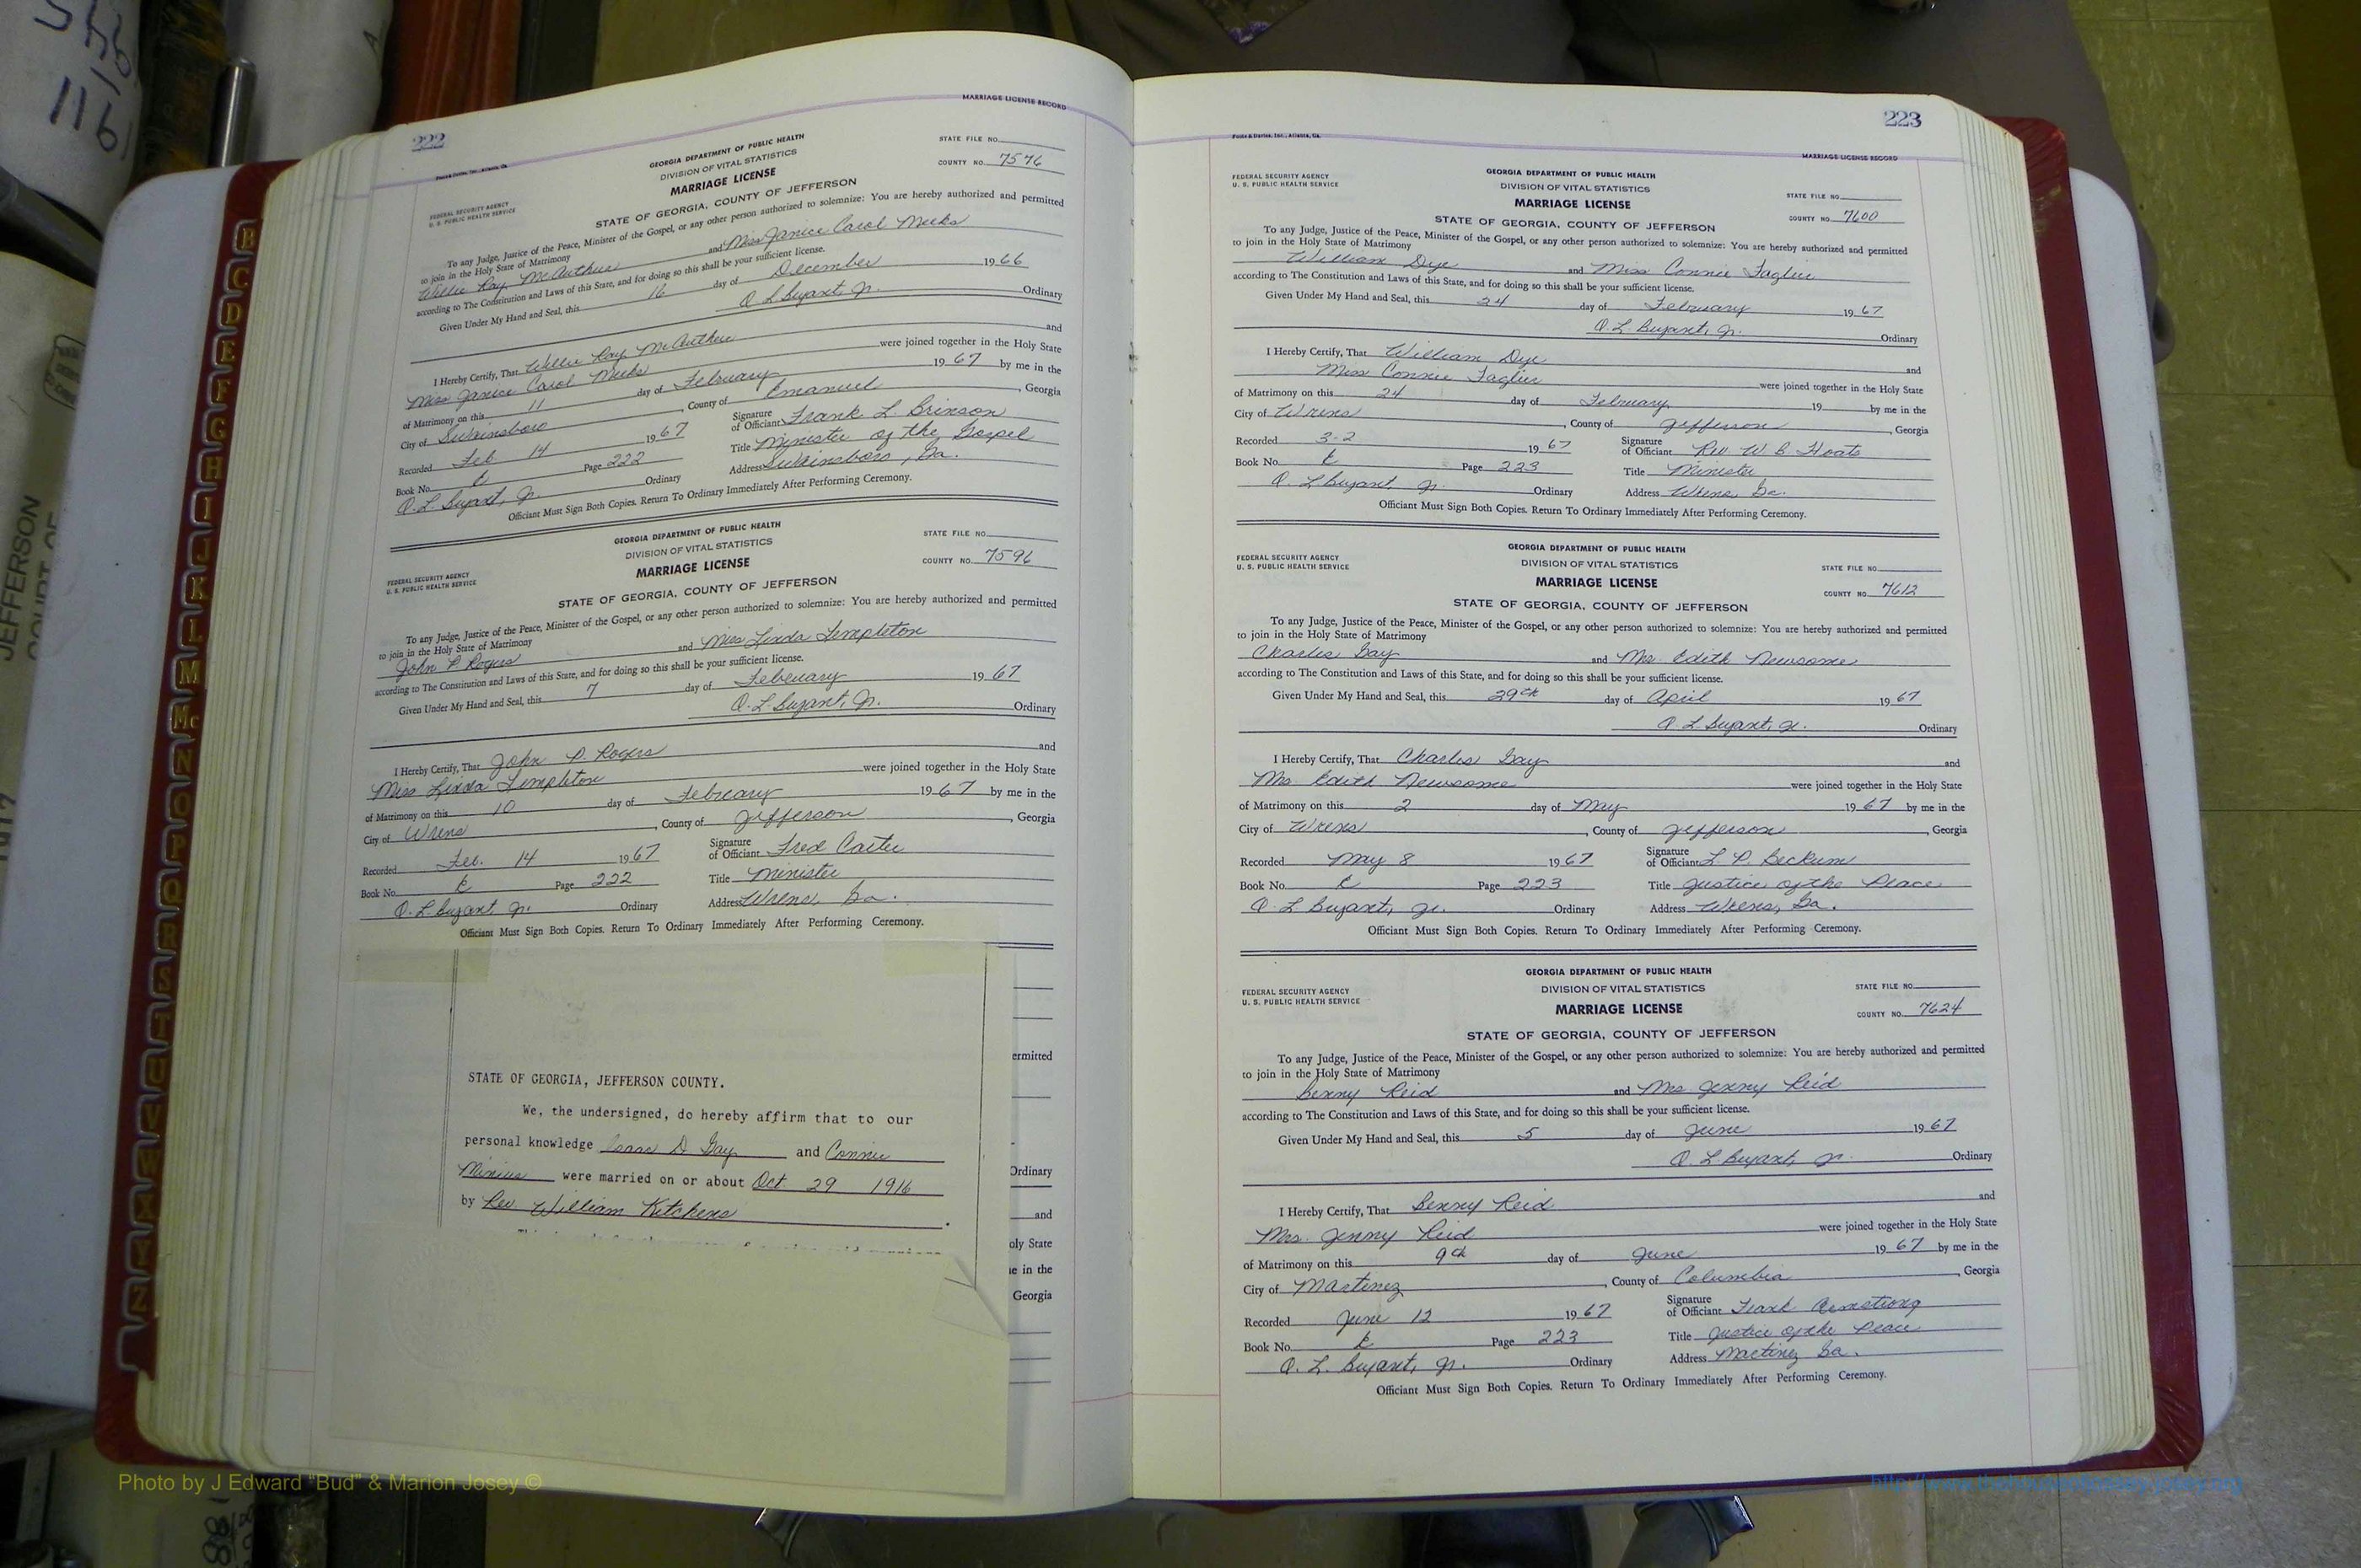 222
MARRIAGE LICENSE RECORD
Foote & Davies, Inc., Atlanta, Ga.
GEORGIA DEPARTMENT OF PUBLIC HEALTH
DIVISION OF VITAL STATISTICS
MARRIAGE LICENSE
STATE FILE NO.
COUNTY NO. 7576
FEDERAL SECURITY AGENCY
U. S. PUBLIC HEALTH SERVICE
STATE OF GEORGIA, COUNTY OF JEFFERSON
To any Judge, Justice of the Peace, Minister of the Gospel, or any other person authorized to solemnize: You are hereby authorized and permitted
to join in the Holy State of Matrimony
Willie Ray McArthur and Miss Janice Carol Meeks
according to The Constitution and Laws of this State, and for doing so this shall be your sufficient license.
Given Under My Hand and Seal, this 16 day of December 1966
Q. L. Bryant, Jr. Ordinary
I Hereby Certify, That Willie Ray McArthur and
Miss Janice Carol Meeks were joined together in the Holy State
of Matrimony on this 11 day of February 1967 by me in the
City of Swainsboro, County of Emanuel, Georgia
Recorded Feb. 14 1967 Signature of Officiant Frank L Brinson
Book No. Page 222 Title Minister of the Gospel
Q. L. Bryant, Jr. Ordinary Address Swainsboro, Ga.
Officiant Must Sign Both Copies. Return To Ordinary Immediately After Performing Ceremony.
GEORGIA DEPARTMENT OF PUBLIC HEALTH
DIVISION OF VITAL STATISTICS
MARRIAGE LICENSE
STATE FILE NO.
COUNTY NO. 7596
FEDERAL SECURITY AGENCY
U. S. PUBLIC HEALTH SERVICE
STATE OF GEORGIA, COUNTY OF JEFFERSON
To any Judge, Justice of the Peace, Minister of the Gospel, or any other person authorized to solemnize: You are hereby authorized and permitted
to join in the Holy State of Matrimony
John P. Rogers and Miss Linda Templeton
according to The Constitution and Laws of this State, and for doing so this shall be your sufficient license.
Given Under My Hand and Seal, this 7 day of February 1967
Q. L. Bryant, Jr. Ordinary
I Hereby Certify, That John P. Rogers and
Miss Linda Templeton were joined together in the Holy State
of Matrimony on this 10 day of February 1967 by me in the
City of Wrens, County of Jefferson, Georgia
Recorded Feb. 14 1967 Signature of Officiant Fred Carter
Book No. Page 222 Title Minister
Q. L. Bryant Jr. Ordinary Address Wrens, Ga.
Officiant Must Sign Both Copies. Return To Ordinary Immediately After Performing Ceremony.
STATE OF GEORGIA, JEFFERSON COUNTY.
We, the undersigned, do hereby affirm that to our
personal knowledge Isaac D Gay and Connie
were married on or about Oct 29 1916
by Rev William Kitchens.
ermitted
Ordinary
and
oly State
e in the
Georgia
223
Foote & Davies, Inc., Atlanta, Ga.
MARRIAGE LICENSE RECORD
FEDERAL SECURITY AGENCY
U. S. PUBLIC HEALTH SERVICE
GEORGIA DEPARTMENT OF PUBLIC HEALTH
DIVISION OF VITAL STATISTICS
MARRIAGE LICENSE
STATE FILE NO.
COUNTY NO. 7600
STATE OF GEORGIA, COUNTY OF JEFFERSON
To any Judge, Justice of the Peace, Minister of the Gospel, or any other person authorized to solemnize: You are hereby authorized and permitted
to join in the Holy State of Matrimony
William Dye and Miss Connie Faglier
according to The Constitution and Laws of this State, and for doing so this shall be your sufficient license.
Given Under My Hand and Seal, this 24 day of February 1967
Q. L. Bryant, Jr. Ordinary
I Hereby Certify, That William Dye and
Miss Connie Faglier were joined together in the Holy State
of Matrimony on this 24 day of February 19 by me in the
City of Wrens, County of Jefferson, Georgia
Recorded 3-2 1967 Signature of Officiant Rev W B Hoats
Book No. Page 223 Title Minister
Q. L. Bryant Jr. Ordinary Address Wrens, Ga.
Officiant Must Sign Both Copies. Return To Ordinary Immediately After Performing Ceremony.
FEDERAL SECURITY AGENCY
U. S. PUBLIC HEALTH SERVICE
GEORGIA DEPARTMENT OF PUBLIC HEALTH
DIVISION OF VITAL STATISTICS
MARRIAGE LICENSE
STATE FILE NO.
COUNTY NO. 7612
STATE OF GEORGIA, COUNTY OF JEFFERSON
To any Judge, Justice of the Peace, Minister of the Gospel, or any other person authorized to solemnize: You are hereby authorized and permitted
to join in the Holy State of Matrimony
Charles Gay and Mrs. Edith Newsome
according to The Constitution and Laws of this State, and for doing so this shall be your sufficient license.
Given Under My Hand and Seal, this 29th day of April 1967
Q. L. Bryant, Jr. Ordinary
I Hereby Certify, That Charles Gay and
Mrs Edith Newsome were joined together in the Holy State
of Matrimony on this 2 day of May 1967 by me in the
City of Wrens, County of Jefferson, Georgia
Recorded May 8 1967 Signature of Officiant L. P. Beckum
Book No. Page 223 Title Justice of the Peace
Q. L. Bryant, Jr. Ordinary Address Wrens, Ga.
Officiant Must Sign Both Copies. Return To Ordinary Immediately After Performing Ceremony.
FEDERAL SECURITY AGENCY
U. S. PUBLIC HEALTH SERVICE
GEORGIA DEPARTMENT OF PUBLIC HEALTH
DIVISION OF VITAL STATISTICS
MARRIAGE LICENSE
STATE FILE NO.
COUNTY NO. 7624
STATE OF GEORGIA, COUNTY OF JEFFERSON
To any Judge, Justice of the Peace, Minister of the Gospel, or any other person authorized to solemnize: You are hereby authorized and permitted
to join in the Holy State of Matrimony
Benny Reid and Mrs Jenny Reid
according to The Constitution and Laws of this State, and for doing so this shall be your sufficient license.
Given Under My Hand and Seal, this 5 day of June 1967
Q. L. Bryant, Jr. Ordinary
I Hereby Certify, That Benny Reid and
Mrs. Jenny Reid were joined together in the Holy State
of Matrimony on this 9th day of June 1967 by me in the
City of Martinez, County of Columbia, Georgia
Recorded June 12 1967 Signature of Officiant Frank Armstrong
Book No. Page 223 Title Justice of the Peace
Q. L. Bryant, Jr. Ordinary Address Martinez Ga.
Officiant Must Sign Both Copies. Return To Ordinary Immediately After Performing Ceremony.
B
C
D
E
F
G
H
I
J
K
L
M
Mc
N
O
P
Q
R
S
T
U
V
W
X
Y
Z
JEFFERSON
Photo by J Edward "Bud" & Marion Josey ©